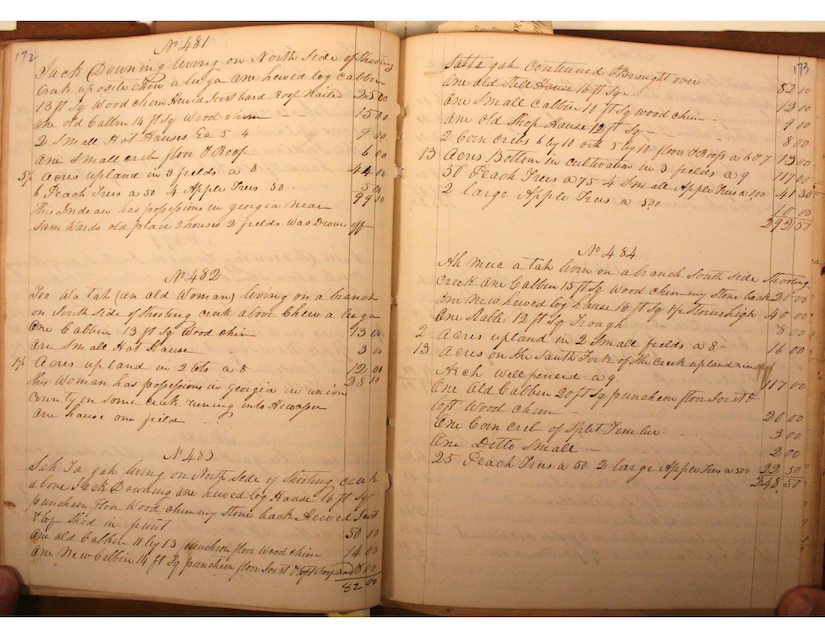 172
No 481
Jack Downing living on North Side of Shooting
Creek oposite chew a luga One hewed log Cabbin
13 ft Sq Wood Chim House Joist bard Roof Nailed 25 00
One old Cabbin 14 ft Sq Wood chim 15 00
2 Small Hot Houses Ea 5 4 9 00
One Small crib floor & Roof 6 00
5 1/2 Acres upland in 3 fields a 8 44 00
6 Peach Trees a 50 4 Apple Trees 50
99 00
This Indian has possessions in georgia near
Sam Wards old place 2 houses 2 fields Was Drove off
No 482
Too Wa tah (an old Woman) living on a branch
on South Side of Shooting creek above Chew a luga
One Cabbin 13 ft Sq Wood chim 13 00
One Small Hot House 3 00
1 1/2 Acres upland in 2 lots a 8 12 00
28 00
this Woman has possessions in Georgia in union
County on Some creek runing into Hiwassee
One house one field
No 483
Sah Ta gah living on North Side of Shooting creek
above Jack Downing One hewed log House 16 ft Sqr
puncheon floor Wood chimny Stone back Hewed Joist
& loft Shed in front 50 00
One old Cabbin 11 by 13 puncheon floor Wood chim 14 00
One New Cabbin 14 ft Sq puncheon floor Joist & loft 18 00
82 00
173
Sah ta gah Continued & Braught over 82 00
One old Still House 16 ft Sq 12 00
One Small Cabbin 10 ft Sq wood chim 9 00
One old Shop House 12 ft Sq 8 00
2 Corn cribs 6 by 10 5 by 10 floor & Roofs a 6 & 7 13 00
13 Acres Bottom in cultivation in 3 fields a 9 117 00
50 Peach Trees a 75 4 Small Apple Trees a 100 41 50
2 large Apple Trees a 500 10 00
292 50
No 484
Ah muc a tah livin on a branch South Side Shooting
Creek One Cabbin 15 ft Sq Wood chimny Stone back 20 00
One New hewed log house 16 ft Sq 1 1/2 Stories high 40 00
One Stable 12 ft Sq Trough 8 00
2 Acres upland in 2 Small fields a 8 16 00
13 Acres on the South Fork of the Creek upland
Rich well fenced a 9 117 00
One Old Cabbin 20 ft Sq puncheon floor Joist &
loft Wood chim 20 00
One Corn crib of Split Timber 3 00
One Ditto Small 2 00
25 Peach Trees a 50 2 large Apple Trees a 500 22 50
248 50